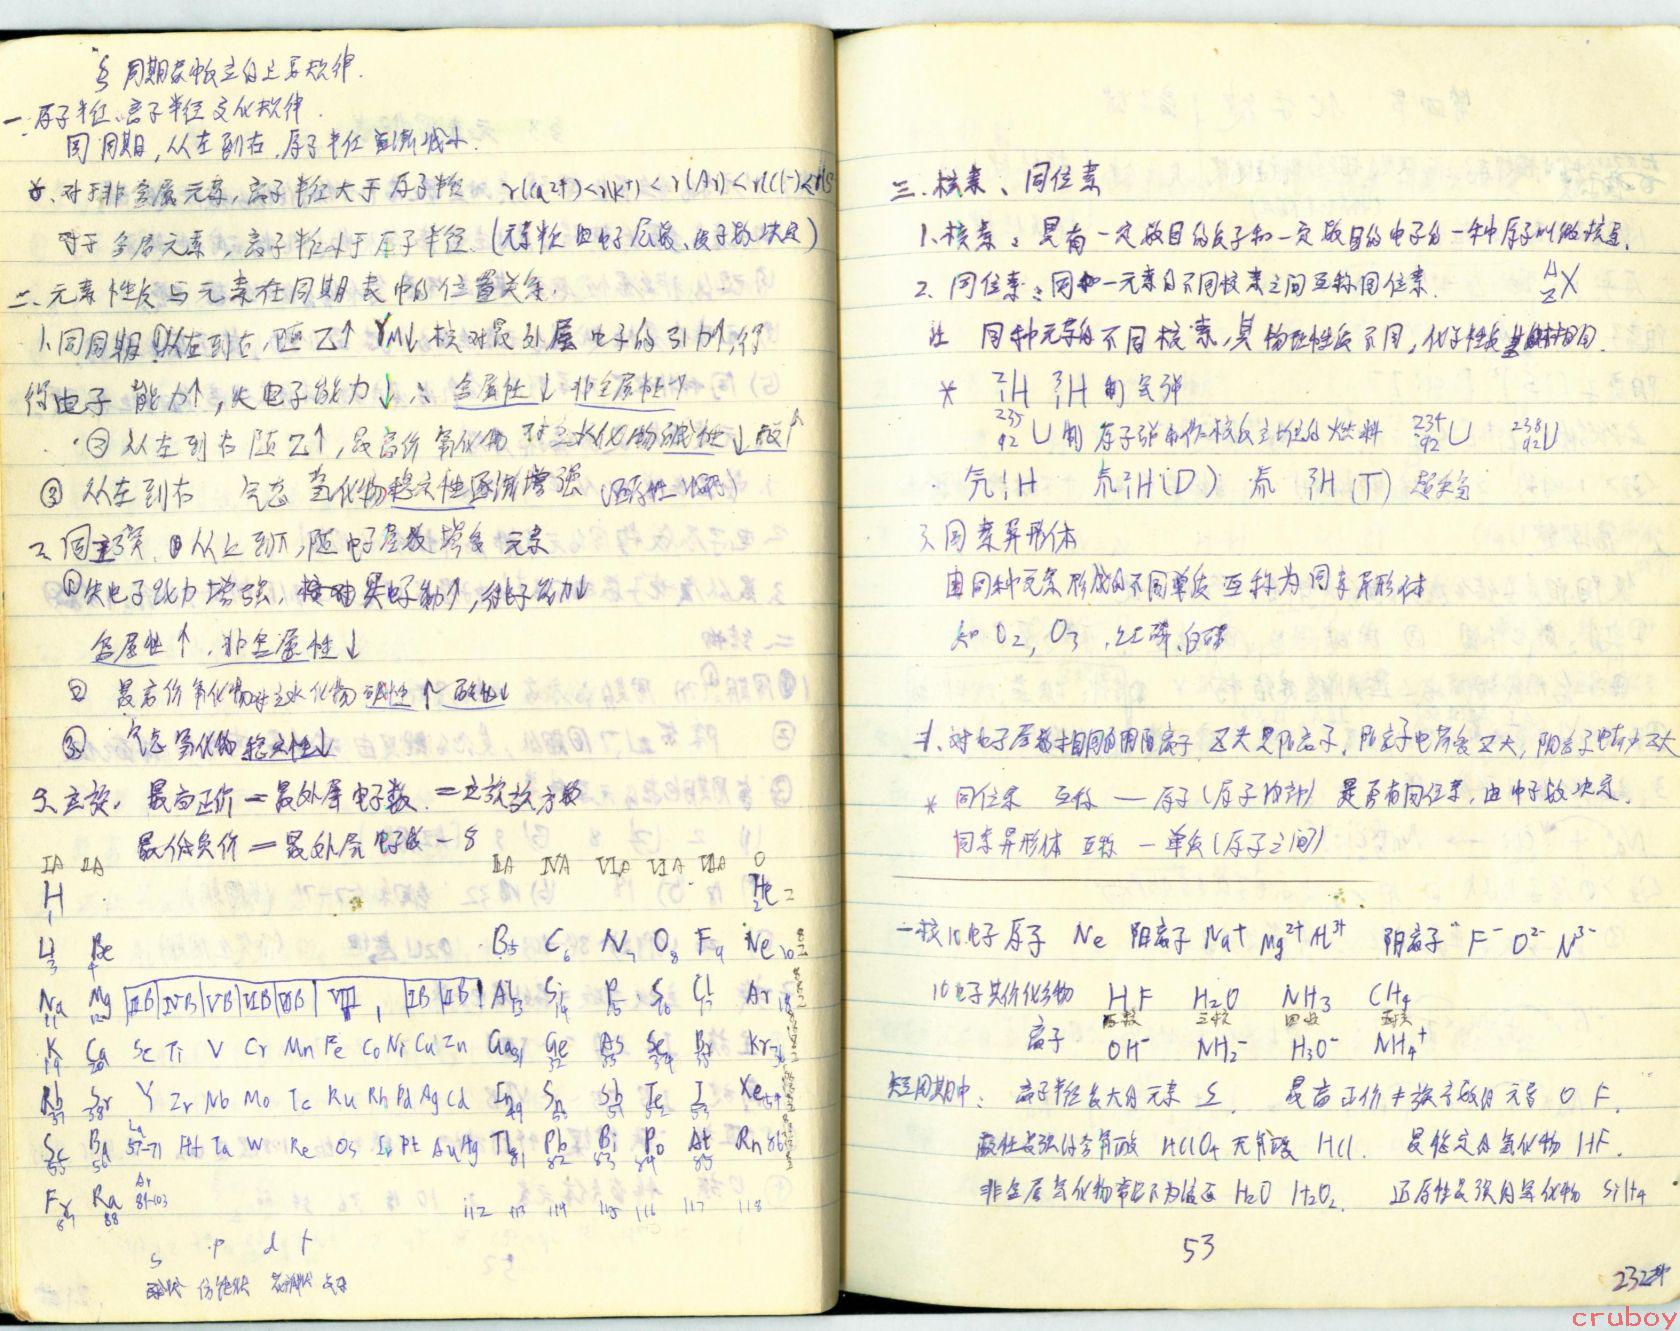 § 周期表中反应的主要规律.
一. 原子半径、离子半径变化规律.
同周期, 从左到右, 原子半径逐渐减小.
对于非金属元素, 离子半径大于原子半径 r(Ca2+)<r(K+)<r(Ar)<r(Cl-)<r(S2-
对于金属元素, 离子半径小于原子半径. (元素半径由电子层数、质子数决定)
二、元素性质与元素在周期表中的位置关系.
1、同周期①从左到右, 随Z↑ r↓ 核对最外层电子的引力↑, 得
得电子能力↑, 失电子能力↓ ∴ 金属性↓ 非金属性↑
② 从左到右随Z↑, 最高价氧化物对应水化物碱性↓酸↑
③ 从左到右 气态氢化物稳定性逐渐增强
2、同主族. 从上到下, 随电子层数增多 元素
①失电子能力增强, 得电子能力↓
金属性↑, 非金属性↓
② 最高价氧化物对应水化物碱性↑ 酸性↓
③ 气态氢化物稳定性↓
3、主族. 最高正价=最外层电子数.=主族族序数
最低负价=最外层电子数-8
IA IIA IIIA IVA VIA VIA VIIA O
H 1 He 2
Li 3 Be 4 B 5 C 6 N 7 O 8 F 9 Ne 10
Na 11 Mg 12 IIIB IVB VB VIB VIIB VIII IB IIB Al 13 Si 14 P 15 S 16 Cl 17 Ar 18
K 19 Ca 20 Sc Ti V Cr Mn Fe Co Ni Cu Zn Ga 31 Ge 32 As 33 Se 34 Br 35 Kr 36
Rb 37 Sr 38 Y Zr Nb Mo Tc Ru Rh Pd Ag Cd In 49 Sn 50 Sb 51 Te 52 I 53 Xe 54
Sc 55 Ba 56 La 57-71 Hf Ta W Re Os Ir Pt Au Hg Tl 81 Pb 82 Bi 83 Po 84 At 85 Rn 86
Fr 87 Ra 88 Ar 89-103 112 113 114 115 116 117 118
s p d f
球状 纺锤状 花瓣状
三、核素、同位素
1、核素: 具有一定数目的质子和一定数目的电子的一种原子叫做核素.
2、同位素: 同一元素的不同核素之间互称同位素. A Z X
注 同种元素的不同核素, 其物理性质不同, 化学性质基本相同.
* ²₁H ³₁H 制氢弹
²³⁵₉₂U 制原子弹和作核反应堆的燃料 ²³⁴₉₂U ²³⁸₉₂U
氕 ¹₁H 氘 ²₁H(D) 氚 ³₁H(T)
3、同素异形体
由同种元素形成的不同单质互称为同素异形体
如 O2, O3, 红磷、白磷
* 同位素 互称 — 原子(原子内部) 是否有同位素, 由中子数决定.
同素异形体 互称 — 单质(原子之间)
一核10电子原子 Ne 阳离子 Na+ Mg2+ Al3+ 阴离子 F- O2- N3-
10电子共价化合物 HF H2O NH3 CH4
两核 三核 四核 五核
离子 OH- NH2- H3O- NH4+
短周期中: 离子半径最大的元素 S. 最高正价≠族序数的元素 O F.
酸性最强的含氧酸 HClO4 无氧酸 HCl. 最稳定的氢化物 HF.
非金属氢化物常温下为液态 H2O H2O2. 还原性最强的氢化物 SiH4
53
232#
cruboy